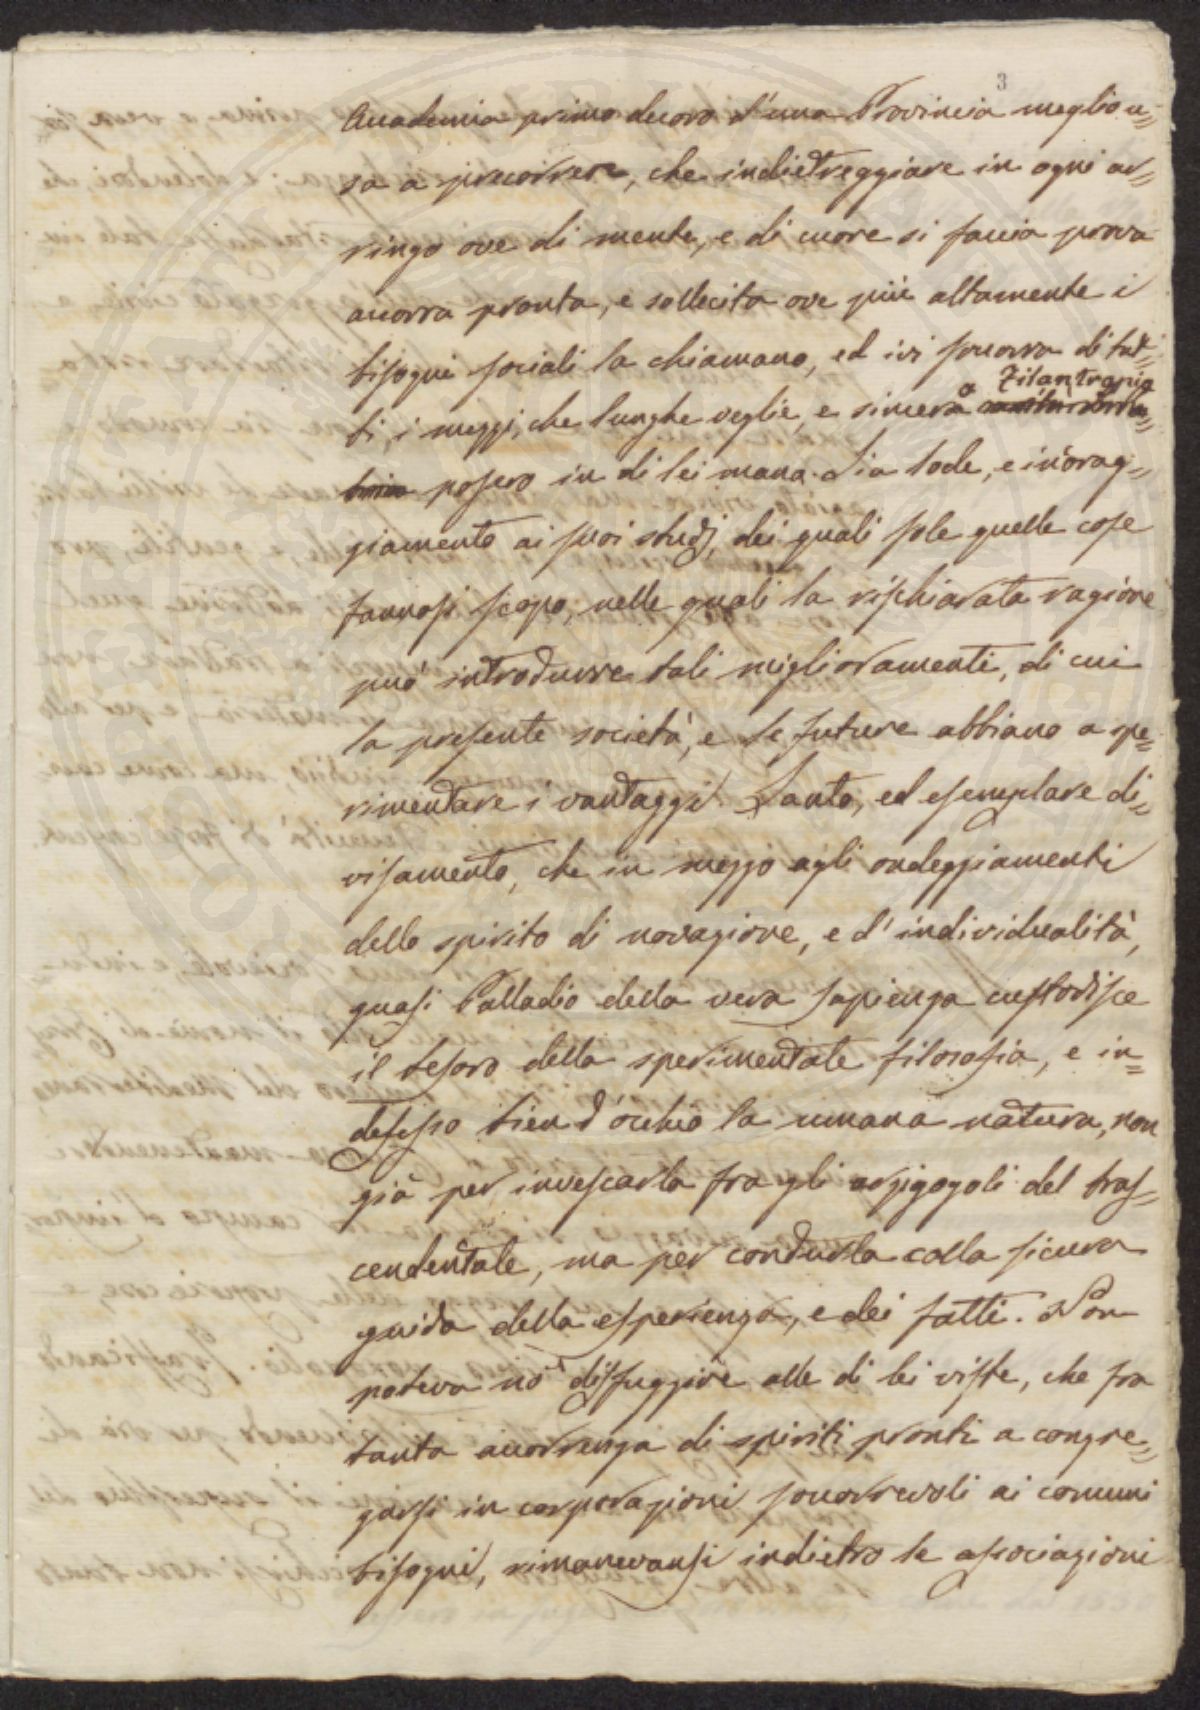 3
Accademia primo decoro d'una Provincia meglio u=
sa a precorrere, che indietreggiare in ogni ar=
ringo ove di mente, e di cuore si faccia prova
accorra pronta, e sollecita ove più altamente i
bisogni sociali la chiamano, ed ivi soccorra di tut=
Filantropia
ti, i mezzi, che lunghe veglie, e sincera
posero in di lei mano. Sia lode, e incorag=
giamento ai suoi studj, dei quali sole quelle cose
fannosi scopo, nelle quali la rischiarata ragione
può introdurre tali miglioramenti, di cui
la presente società, e le future abbiano a spe=
rimentare i vantaggi. Santo, ed esemplare di=
visamento, che in mezzo agli ondeggiamenti
dello spirito di novazione, e d'individualità,
quasi Palladio della vera sapienza custodisce
il tesoro della sperimentale filosofia, e in=
defesso tien d'occhio la umana natura, non
già per invescarla fra gli arzigogoli del tras=
cendentale, ma per condurla colla sicura
guida della esperienza, e dei fatti. Non
poteva no disfuggire alle di lei viste, che fra
tanta accorrenza di spiriti pronti a congre=
garsi in corporazioni soccorrevoli ai comuni
bisogni, rimanevansi indietro le associazioni